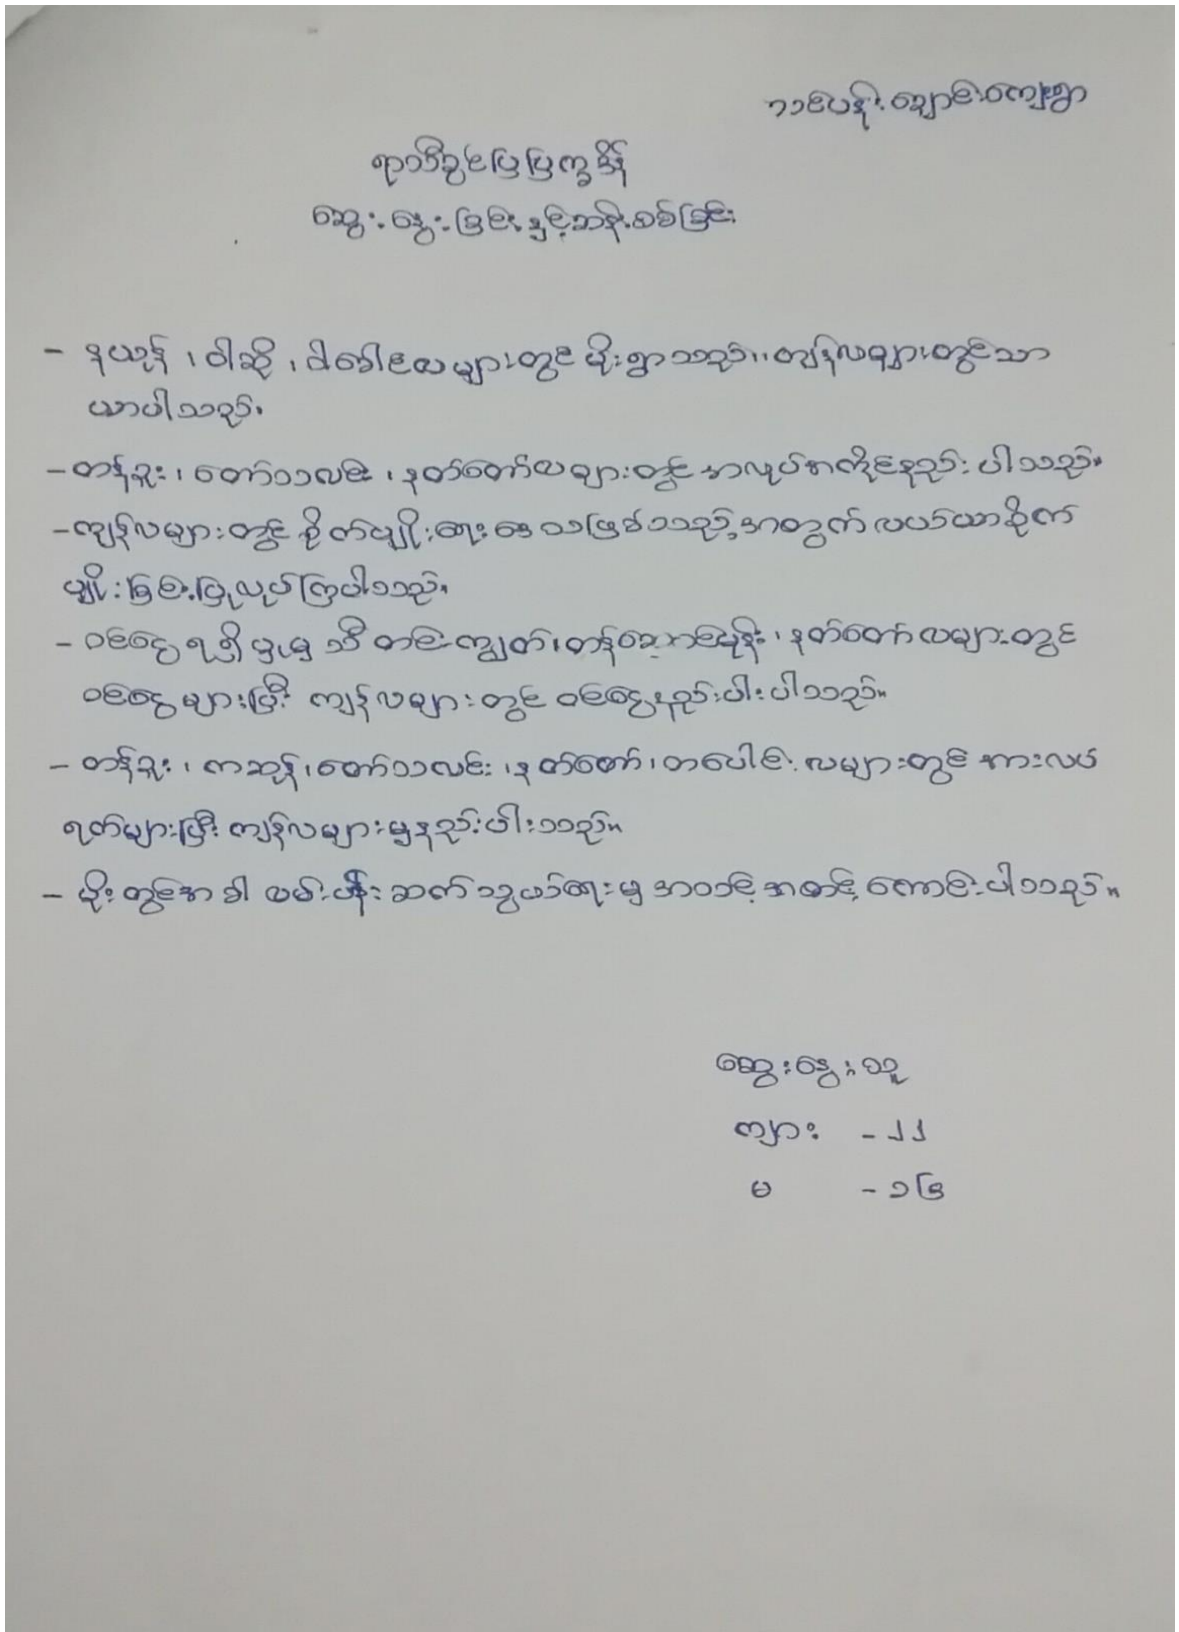 ဘင်ပန်းချောင်းကျေးရွာ
ရာသီခွင်ပြပြက္ခဒိန်
ဆွေးနွေးခြင်းနှင့်ဆန်းစစ်ခြင်း
- နယုန်၊ ဝါဆို၊ ဝါခေါင်လများတွင် မိုးရွာသည်။ ကျန်လများတွင်သာ
ယာပါသည်။
- တန်ခူး၊ တော်သလင်း၊ နတ်တော်လများတွင် အလုပ်အကိုင်နည်းပါသည်။
- ကျန်လများတွင် စိုက်ပျိုးရေးဒေသဖြစ်သည့်အတွက် လယ်ယာစိုက်
ပျိုးခြင်းပြုလုပ်ကြပါသည်။
- ဝင်ငွေရရှိမှုမှ သီတင်းကျွတ်၊ တန်ဆောင်မုန်း၊ နတ်တော်လများတွင်
ဝင်ငွေများပြီး ကျန်လများတွင် ဝင်ငွေနည်းပါးပါသည်။
- တန်ခူး၊ ကဆုန်၊ တော်သလင်း၊ နတ်တော်၊ တပေါင်းလများတွင် အားလပ်
ရက်များပြီး ကျန်လများမှနည်းပါးသည်။
- မိုးတွင်အခါ လမ်းပန်းဆက်သွယ်ရေးမှ အသင့်အတင့်ကောင်းပါသည်။
ဆွေးနွေးသူ
ကျား - ၂၂
မ - ၁၆